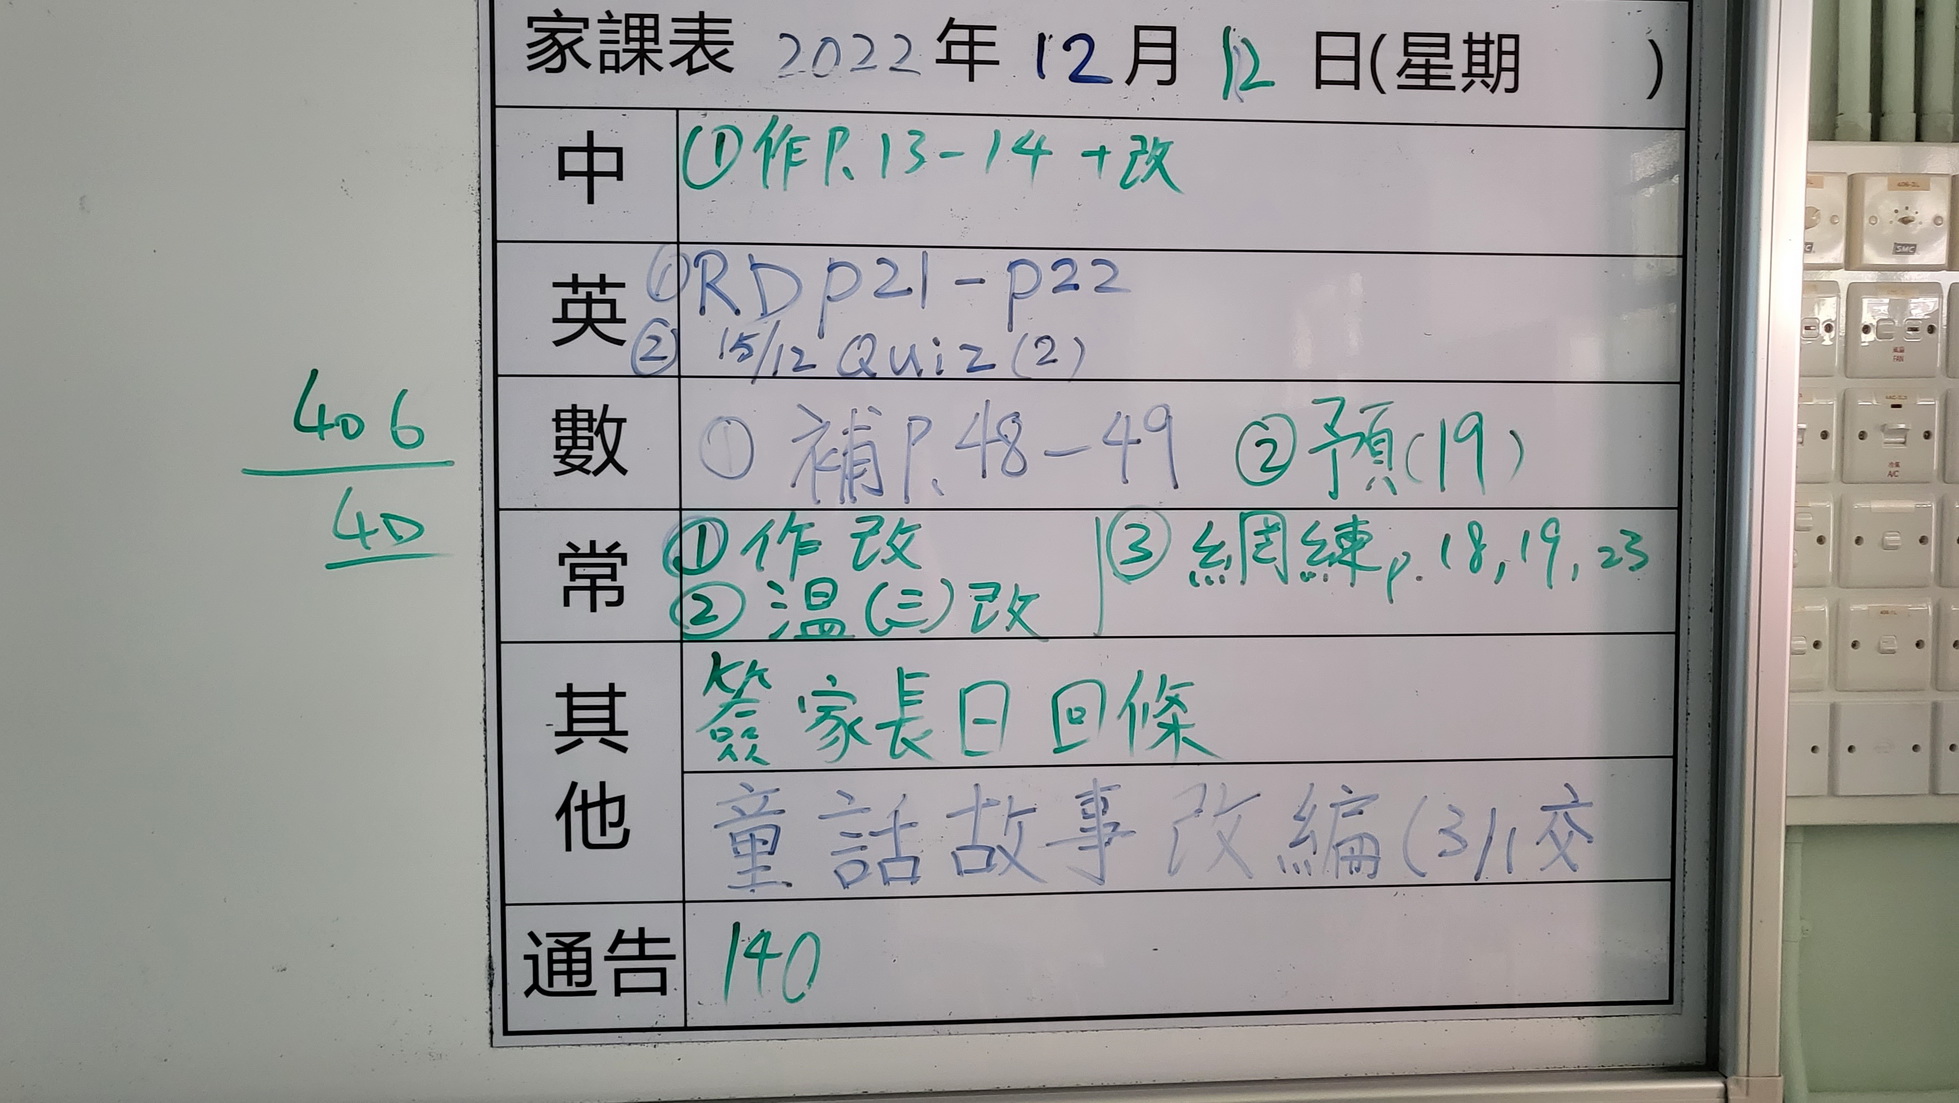 家課表 2022年 12月 12日(星期 )
中 ①作P.13-14+改
英 ①RD p21-p22
② 15/12 Quiz(2)
數 ①補P.48-49 ②預(19)
常 ①作改 ③網練p.18,19,23
②温(三)改
其他 簽家長日回條
童話故事改編(3/1交
通告 140
406
40
SMC
FAN
A/C